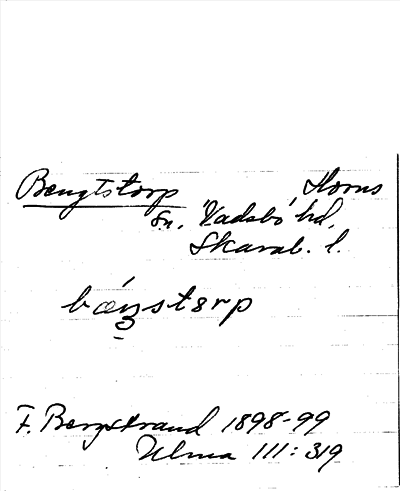 Bengtstorp Horns
sn, Vadsbo hd,
Skarab. l.
bæŋstɔrp
F. Bergstrand 1898-99
Ulma 111:319